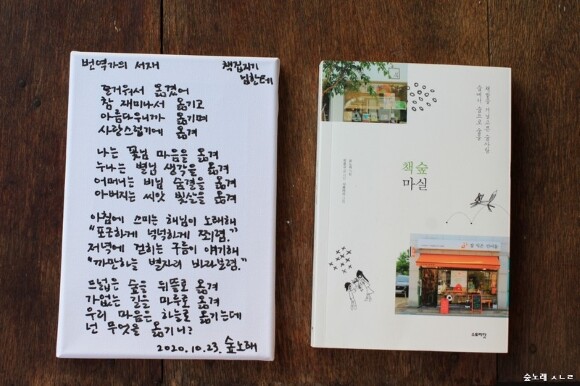 번역가의 서재
책집지기
님한테
즐거워서 옮겼어
참 재미나서 옮기고
아름다우니까 옮기며
사랑스럽기에 옮겨
나는 꽃님 마음을 옮겨
누나는 별님 생각을 옮겨
어머니는 비님 숨결을 옮겨
아버지는 씨앗 빛살을 옮겨
아침에 스미는 해님이 노래해
"포근하게 넉넉하게 쬐렴."
저녁에 걷히는 구름이 얘기해
"까만하늘 별자리 바라보렴."
드넓은 숲을 뒤뜰로 옮겨
가없는 길을 마루로 옮겨
우리 마음은 하늘로 옮기는데
넌 무엇을 옮기니?
2020.10.23. 숲노래
책숲
마실
스토리닷
숲노래 ㅅㄴㄹ